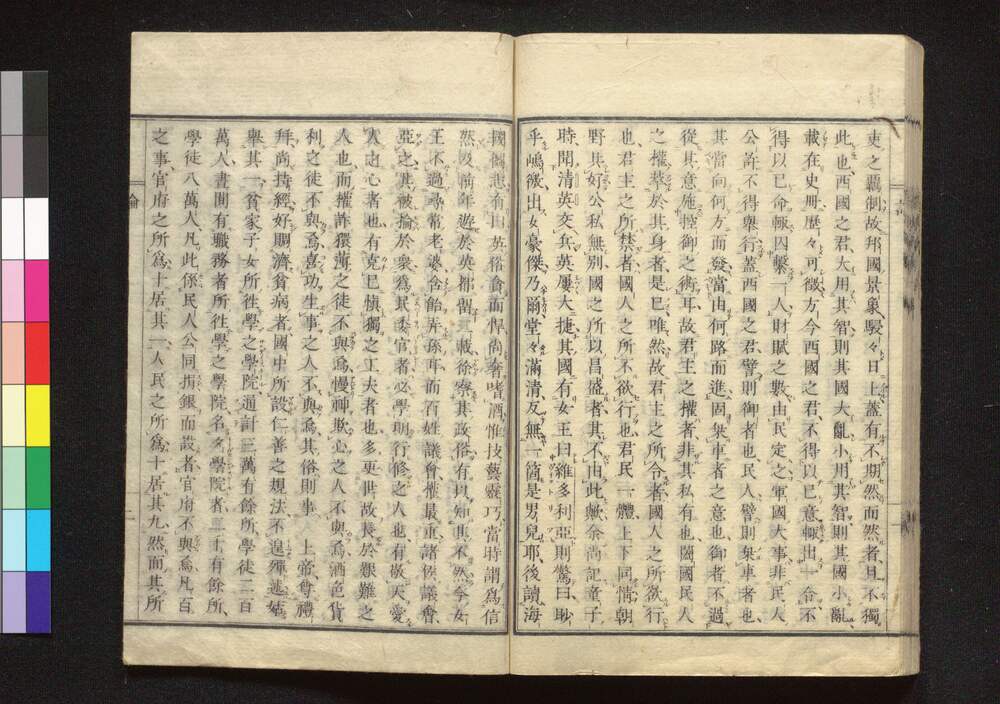 吏之羈制故邦國景象駸々日上蓋有不期然而然者且不獨
此也西國之君大用其智則其國大亂小用其智則其國小亂
載在史冊歷々可徵方今西國之君不得以己意輒出一令不
得以己命輒囚繫一人財賦之數由民定之軍國大事非民人
公許不得舉行蓋西國之君譬則御者也民人譬則乘車者也
其當向何方而發當由何路而進固乘車者之意也御者不過
從其意施控御之術耳故君主之權者非其私有也闔國民人
之權萃於其身者是已唯然故君主之所令者國人之所欲行
也君主之所禁者國人之所不欲行也君民一體上下同情朝
野共好公私無別國之所以昌盛者其不由此歟余尚記童子
時聞清英交兵英屢大捷其國有女王曰維多利亞則驚曰眇
乎嶋徼出女豪傑乃爾堂々滿清反無一箇是男兒耶後讀海
國圖志有曰英俗貪而悍尚奢嗜酒惟技藝靈巧當時謂爲信
然及前年遊於英都留二載徐察其政俗有以知其不然今女
王不過尋常老婆含飴弄孫耳而百姓議會權最重諸侯議會
亞之其被掄於衆爲民委官者必學明行修之人也有敬天愛
人之心者也有克己愼獨之工夫者也多更世故長於艱難之
人也而權詐獧薄之徒不與焉慢神欺心之人不與焉酒色貨
利之徒不與焉喜功生事之人不與焉其俗則事上帝尊禮
拜尚持經好賙濟貧病者國中所設仁善之規法不遑殫述姑
舉其一貧家子女所往學之學院通計三萬有餘所學徒二百
萬人晝間有職務者所往學之學院名夕學院者二千有餘所
學徒八萬人凡此係民人公同捐銀而設者官府不與焉凡百
之事官府之所爲十居其一人民之所爲十居其九然而其所
論